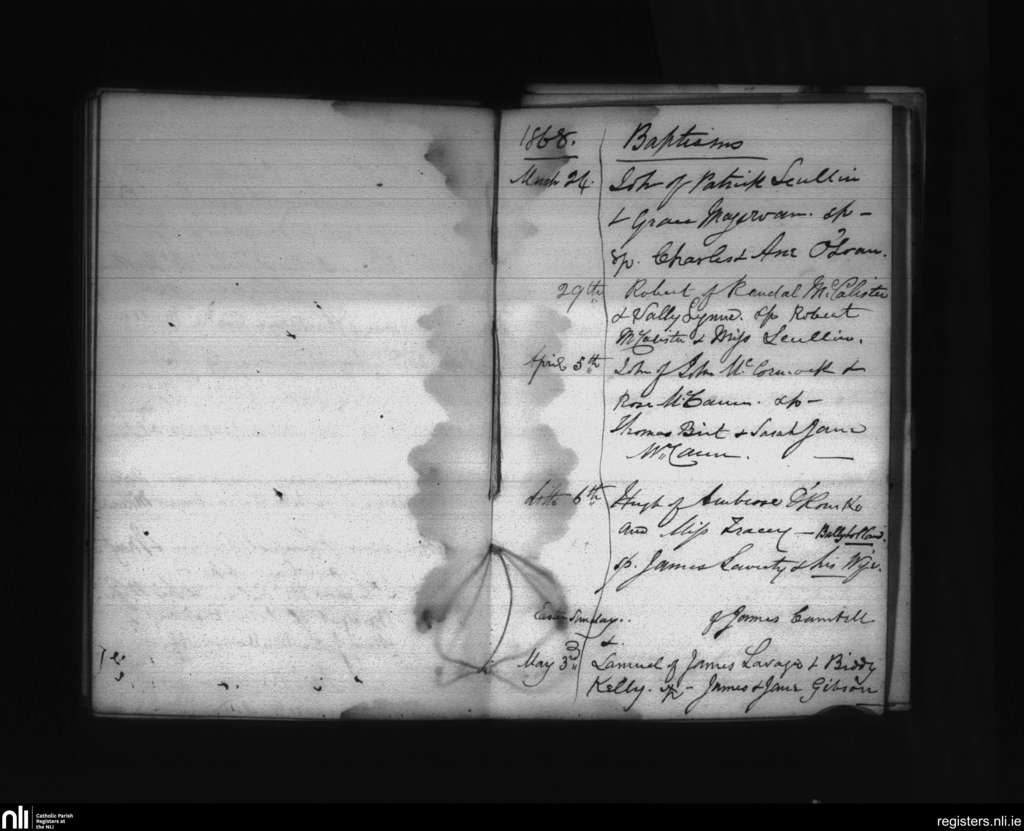 1868. Baptisms
March 24. John of Patrick Scullin
& Grace Magorvan. sp -
sp. Charles & Ane O'Loan.
29th Robert of Rendal McCalister
& Sally Lynne. sp Robert
McCalister & Miss Scullin.
April 5th John of John McCormack &
Rose McCann. sp -
Thomas Birt & Sarah Jane
McCann. —
ditto 6th Hugh of Ambrose O'Rourke
and Miss Tracey — Ballyholland.
sp. James Laverty & his Wife.
Easter Sunday. . of James Cambell
&
May 3rd Samuel of James Savage & Biddy
Kelly. sp - James & Jane Gibson
nli
Catholic Parish
Registers at
the NLI
registers.nli.ie